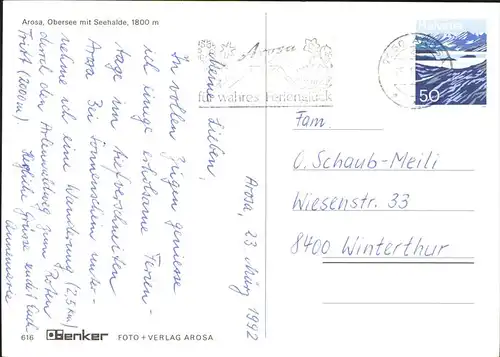 Arosa, Obersee mit Seehalde, 1800 m
Arosa, 23. März 1992
Meine Lieben,
In vollen Zügen geniesse
ich einige erholsame Ferien-
tage im tiefverschneiten
Arosa. Bei Sonnenschein unter-
nehme ich eine Wanderung (2,5 Km)
durch den Arlenwaldweg zum Roten
Tritt (2000m). Herzliche Grüsse sendet Euch
Annemarie
616 Denker FOTO + VERLAG AROSA
Arosa
für wahres Ferienglück
Helvetia
50
Fam.
U. Schaub-Meili
Wiesenstr. 33
8400 Winterthur